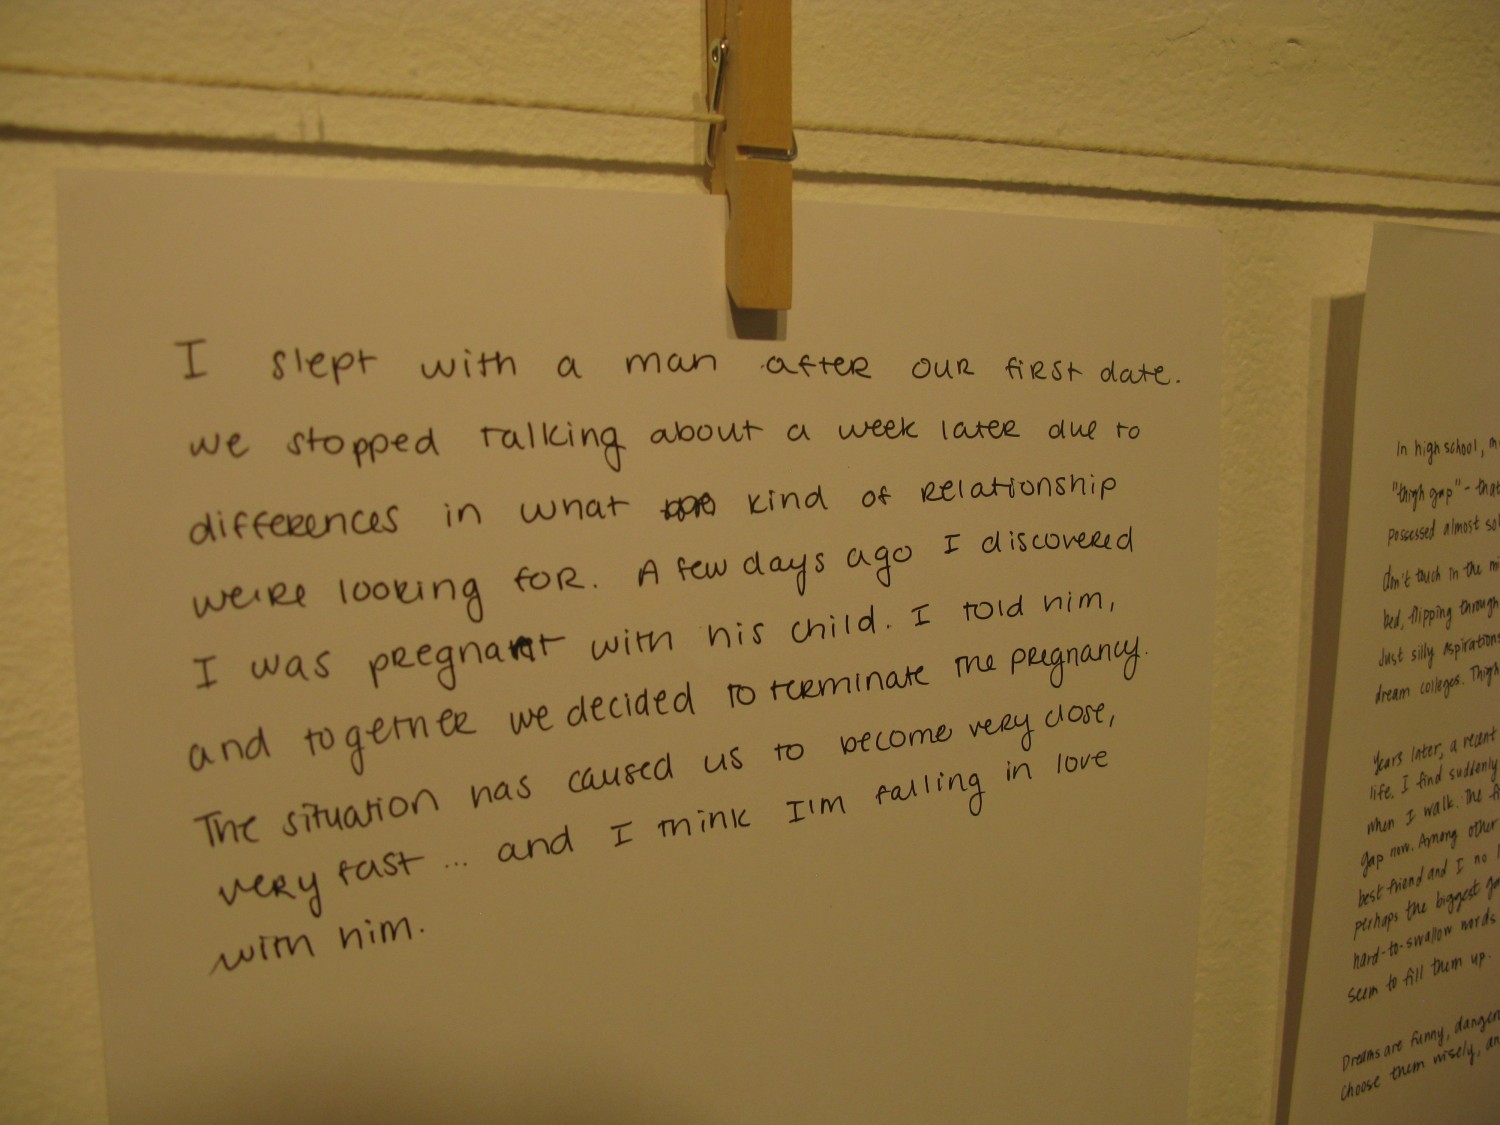 I slept with a man after our first date.
we stopped talking about a week later due to
differences in what kind of relationship
we're looking for. A few days ago I discovered
I was pregnant with his child. I told him,
and together we decided to terminate the pregnancy.
The situation has caused us to become very close,
very fast ... and I think I'm falling in love
with him.
In high school, m
"thigh gap" - that
possessed almost sol
don't touch in the mi
bed, flipping through
Just silly aspirations
dream colleges. Thigh
Years later, a recent
life, I find suddenly
when I walk. The fi
gap now. Among other
best friend and I no l
perhaps the biggest ga
hard-to-swallow words
seem to fill them up.
Dreams are funny, danger
choose them wisely, an